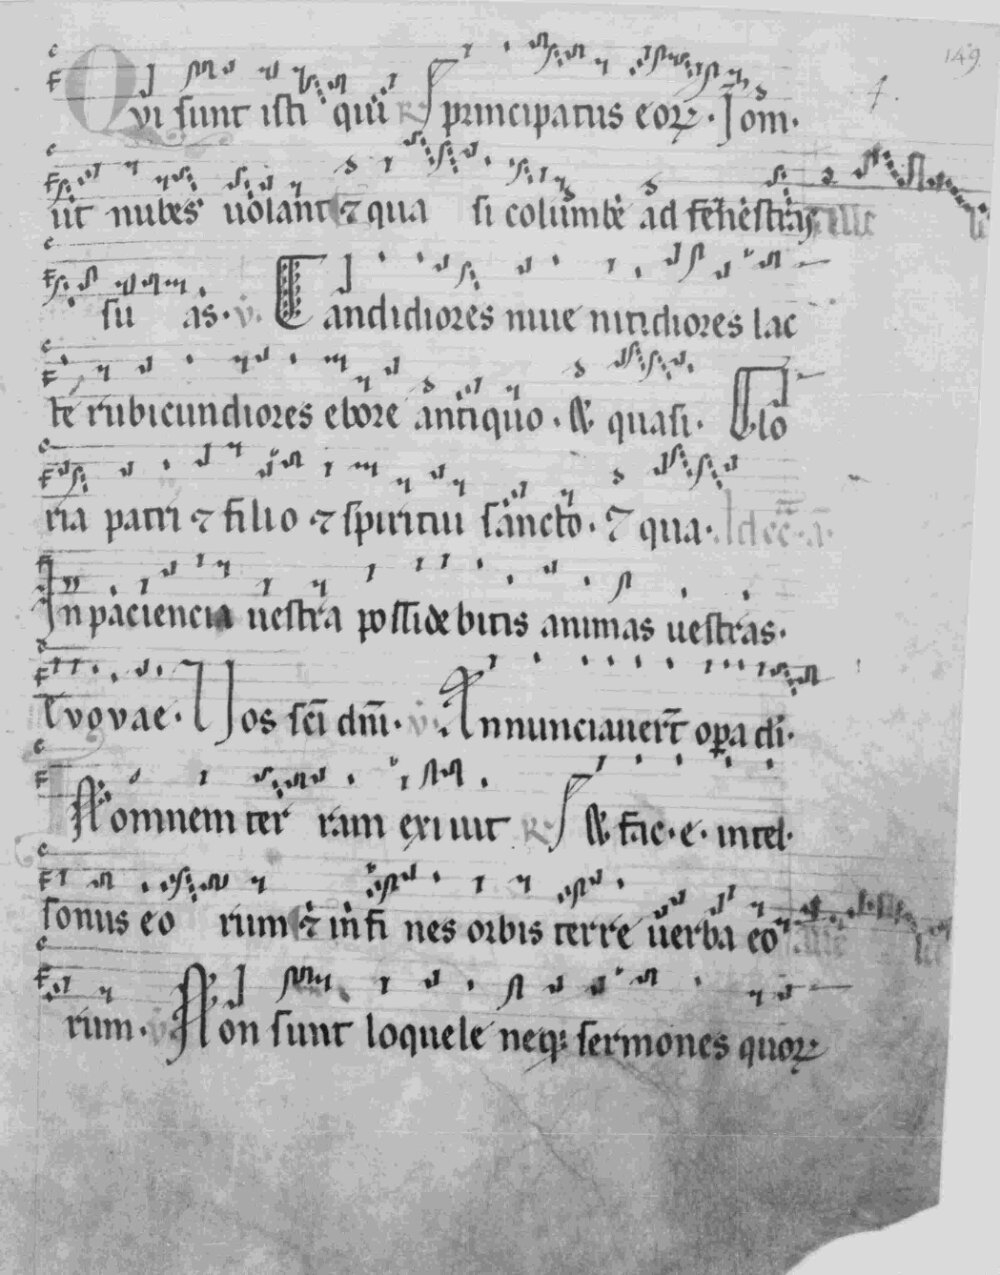 149
QVI sunt isti qui R principatus eoꝝ · Iom·
ut nubes uolant ⁊ qua si columbe ad fenestras
su as · V. Candidiores niue nitidiores lac
te rubicundiores ebore antiquo · & quasi · Glo
ria patri ⁊ filio ⁊ spiritui sancto · ⁊ qua ·
In paciencia uestra possidebitis animas uestras·
Evovae · Vos sc̄i dn̄i · V. Annunciauer̄t oꝑa di·
In omnem ter ram exiuit R & fac · e · intel·
sonus eo rum ⁊ in fi nes orbis terre uerba eo
rum · V. Non sunt loquele neqꝫ sermones quoꝝ